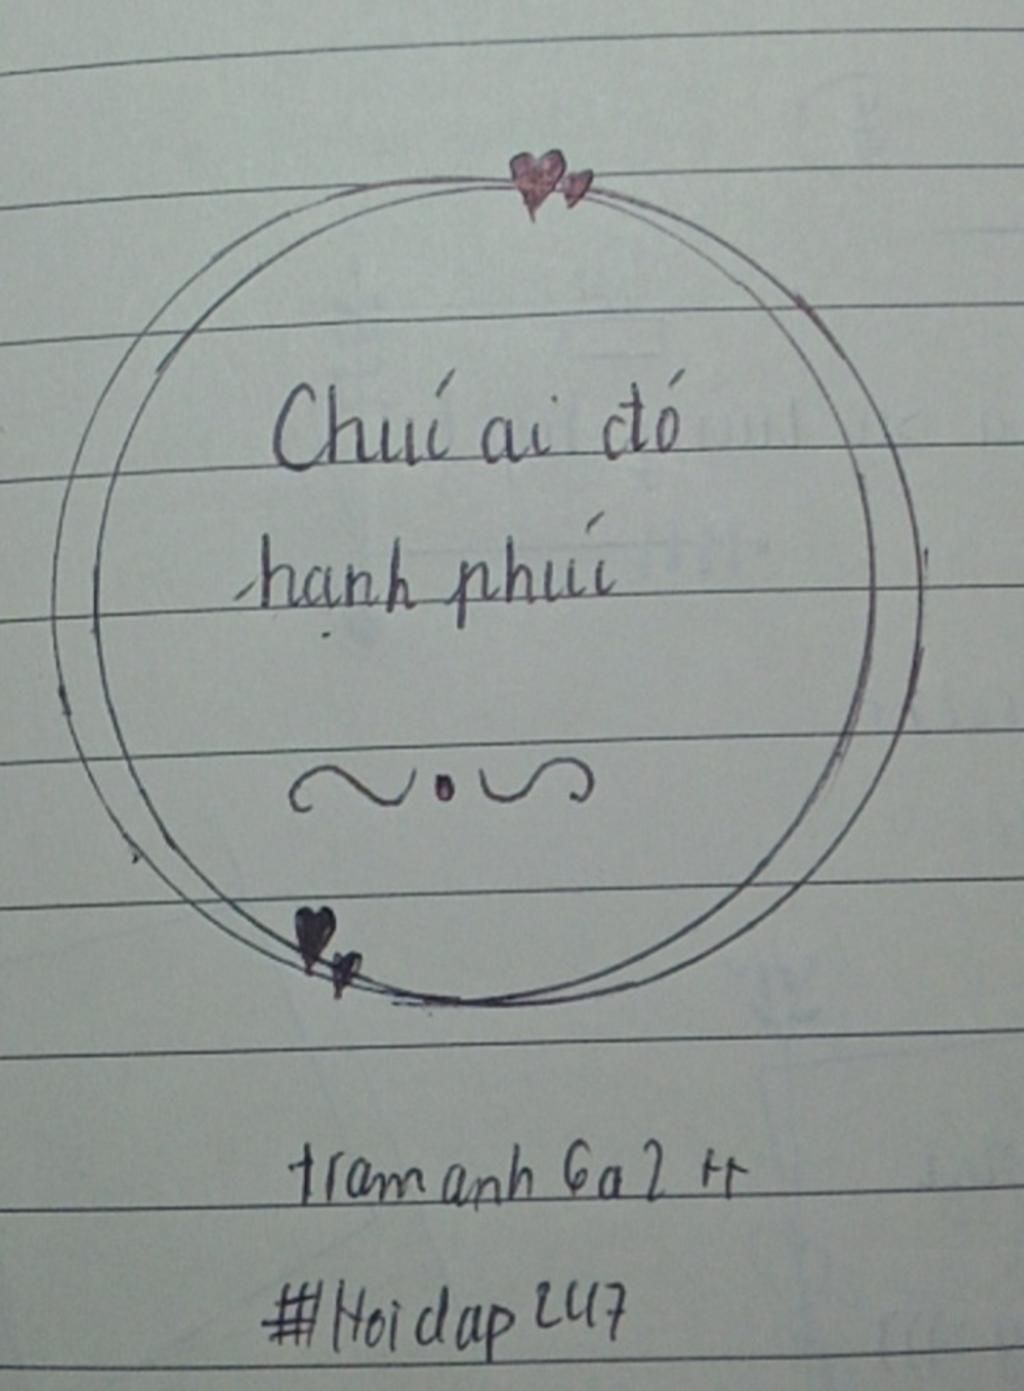 Chúc ai đó
hạnh phúc
tramanh6a2tt
#Hoidap247